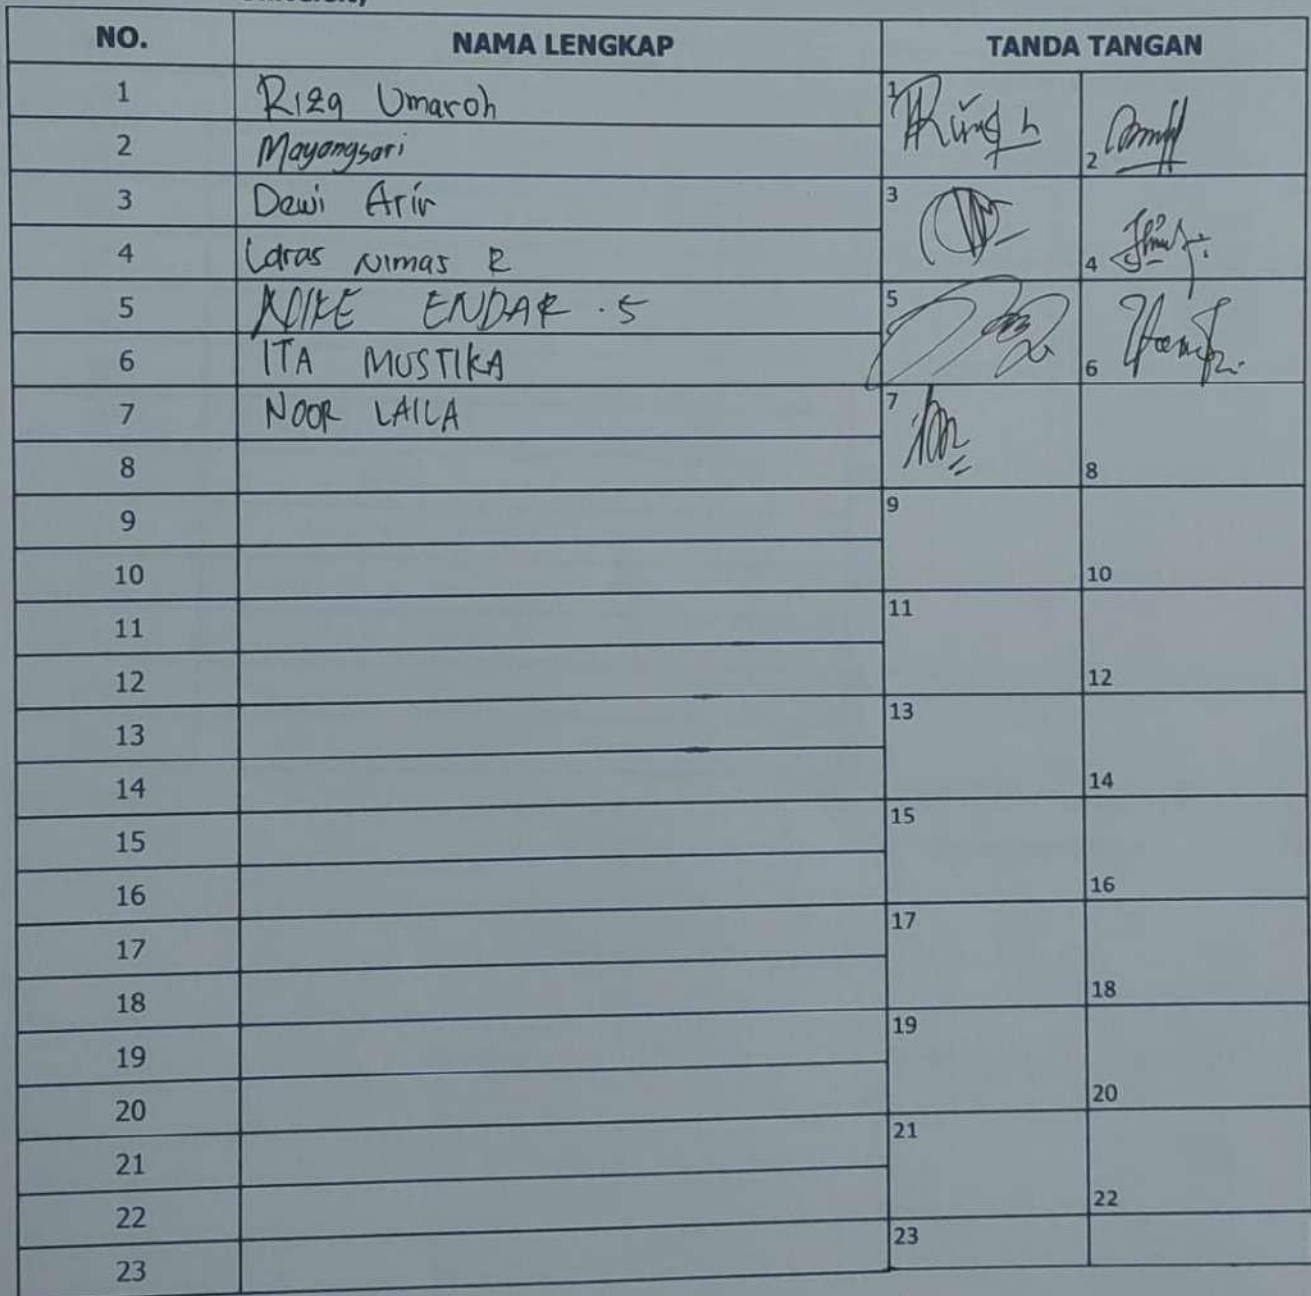 NO. NAMA LENGKAP TANDA TANGAN
1 Riza Umaroh 1
2 Mayangsari 2
3 Dewi Arir 3
4 Laras Nimas R 4
5 ENDAR .S 5
6 ITA MUSTIKA 6
7 NOOR LAILA 7
8 8
9 9
10 10
11 11
12 12
13 13
14 14
15 15
16 16
17 17
18 18
19 19
20 20
21 21
22 22
23 23